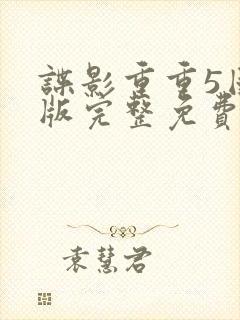 諜影重重5
版完整免費
袁慧君